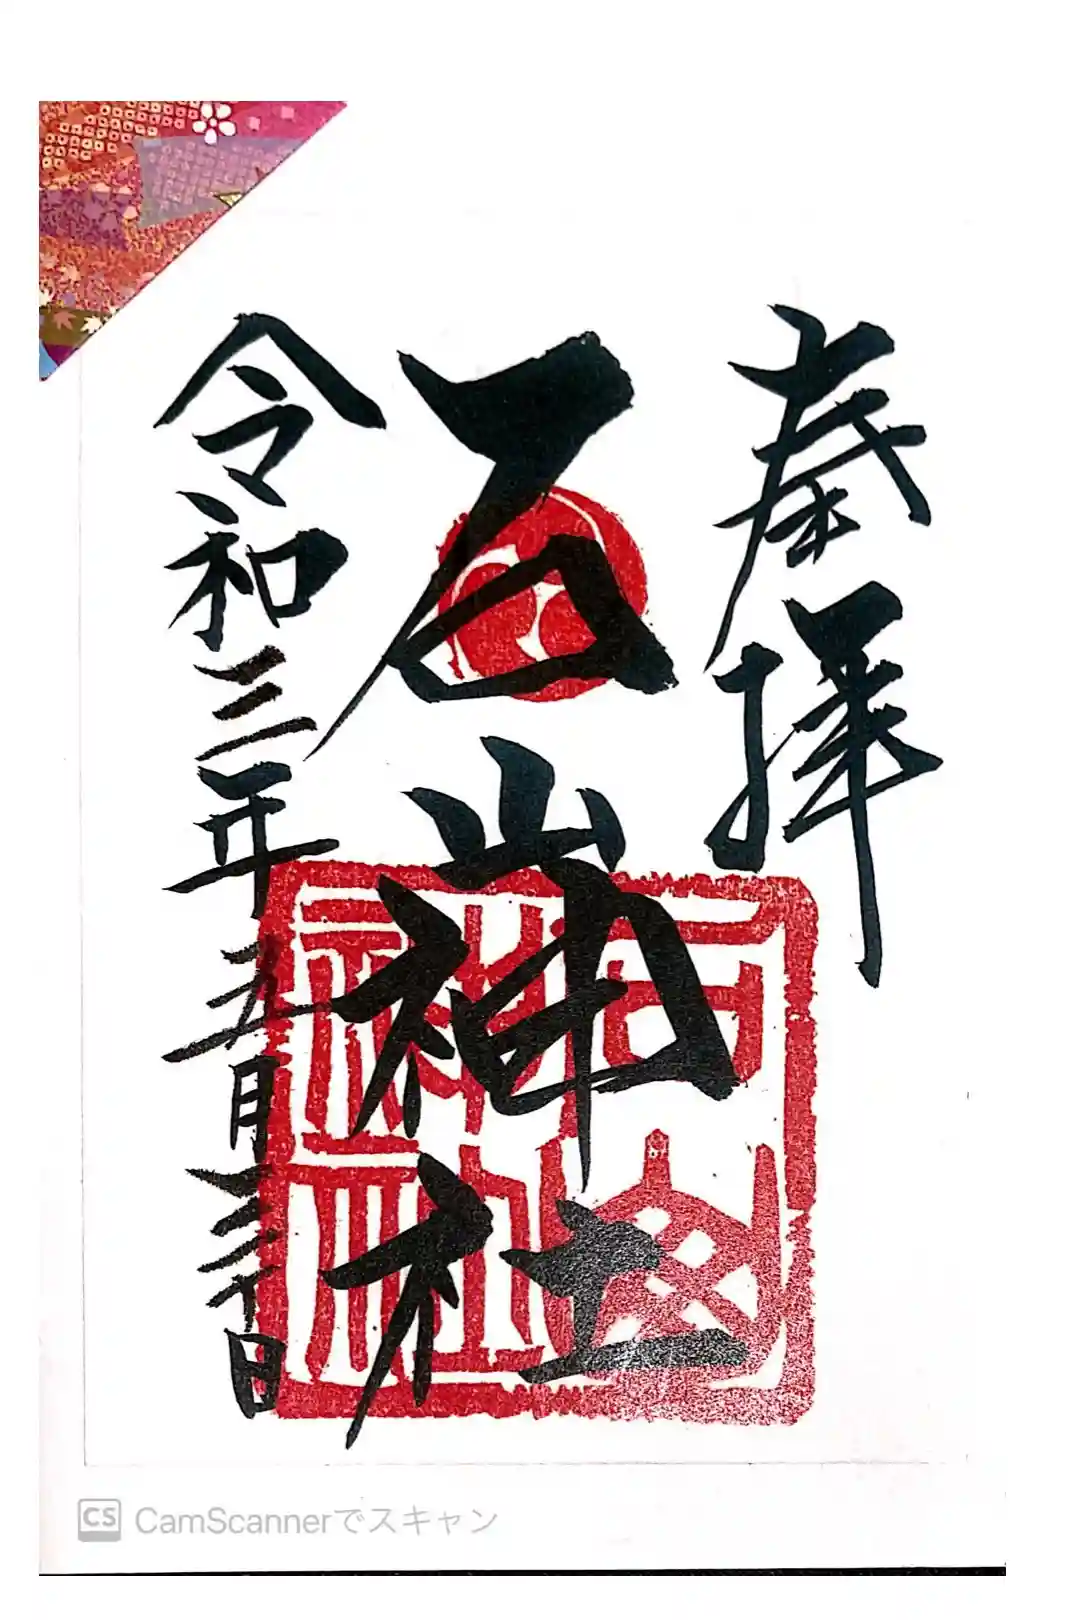 奉拝
石山神社
令和三年五月二十日
CS CamScannerでスキャン